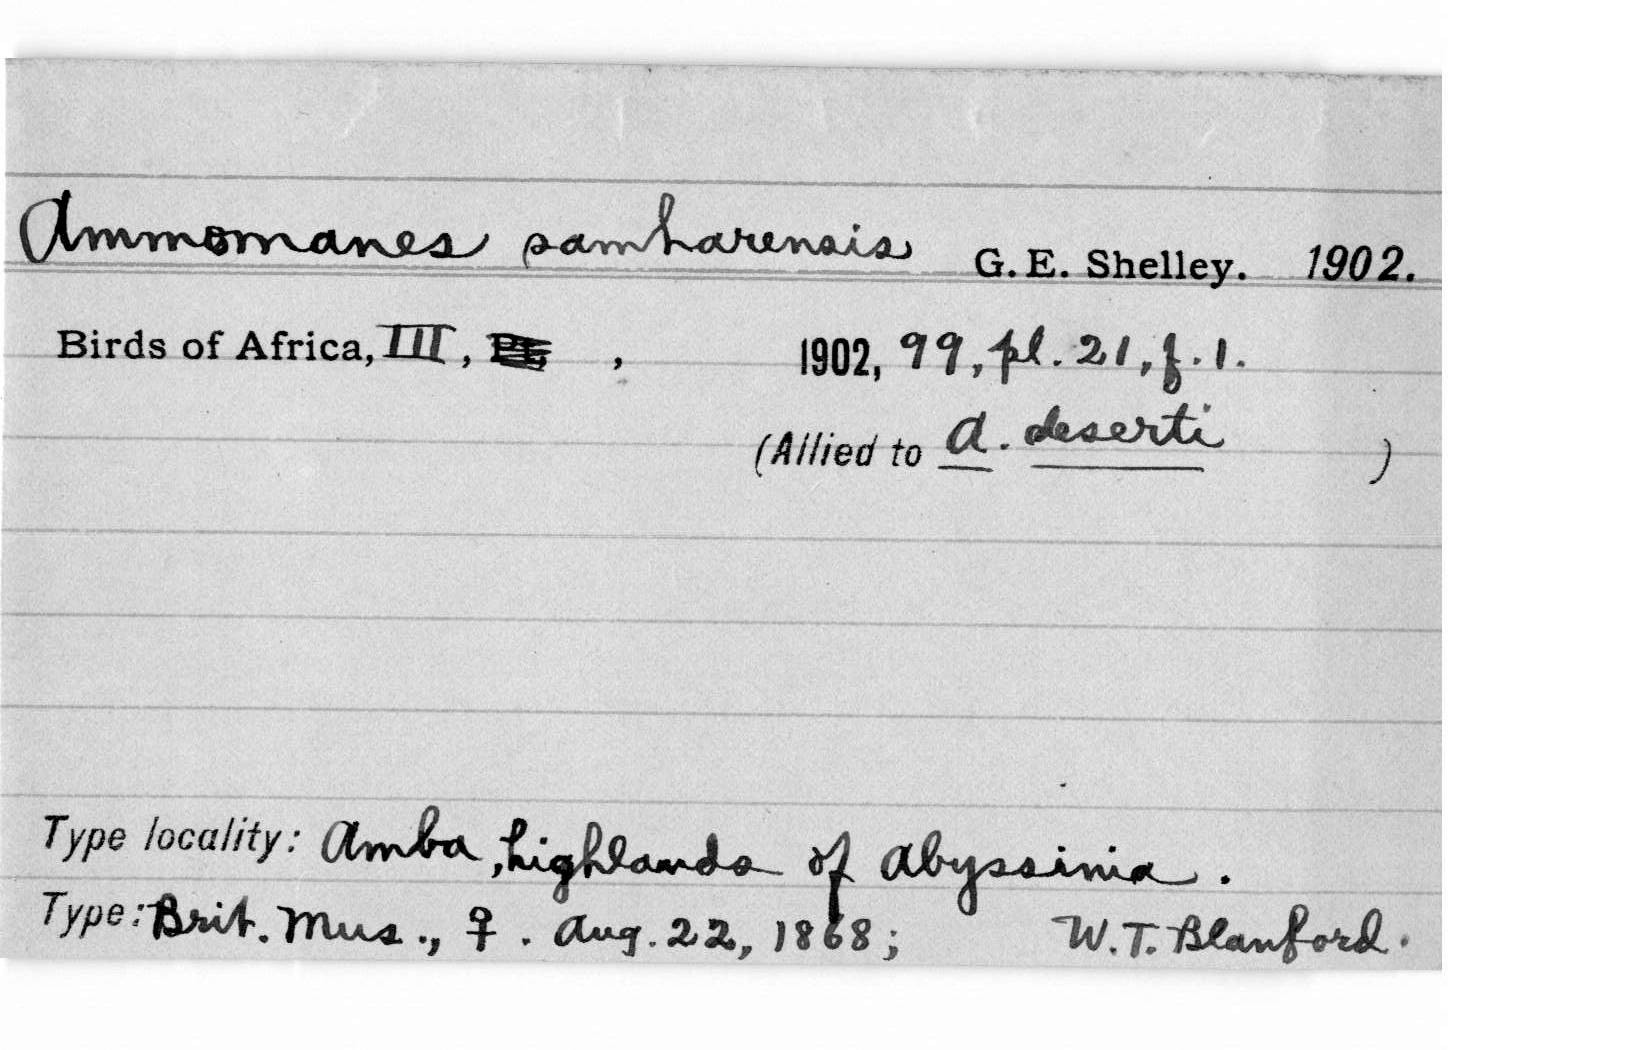 Ammomanes samharensis G. E. Shelley. 1902.
Birds of Africa, III, , 1902, 99, pl. 21, f. 1.
(Allied to A. deserti )
Type locality: Amba, highlands of Abyssinia.
Type: Brit. Mus., ♀. Aug. 22, 1868; W. T. Blanford.